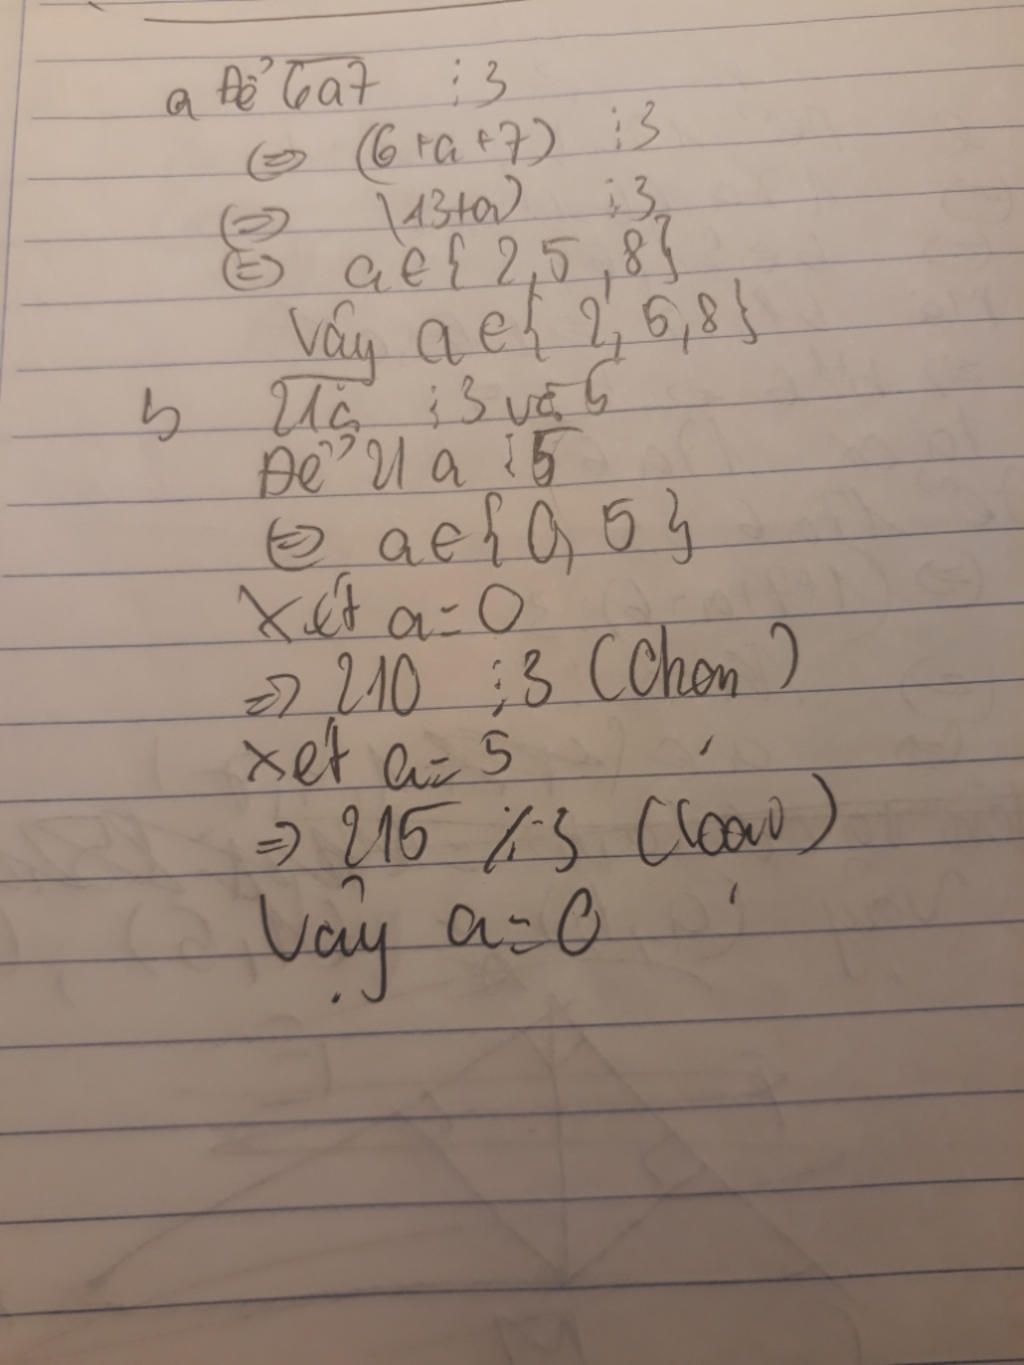 a Để 6a7 ⋮ 3
⇔ (6+a+7) ⋮ 3
⇔ (13+a) ⋮ 3
⇔ a ∈ { 2, 5, 8}
Vây a ∈ { 2, 5, 8}
b 21a ⋮ 3 và 5
Để 21a ⋮ 5
⇔ a ∈ { 0, 5 }
Xét a = 0
⇒ 210 ⋮ 3 (Chọn)
xét a = 5
⇒ 215 ⋮̸ 3 (loại)
Vậy a = 0